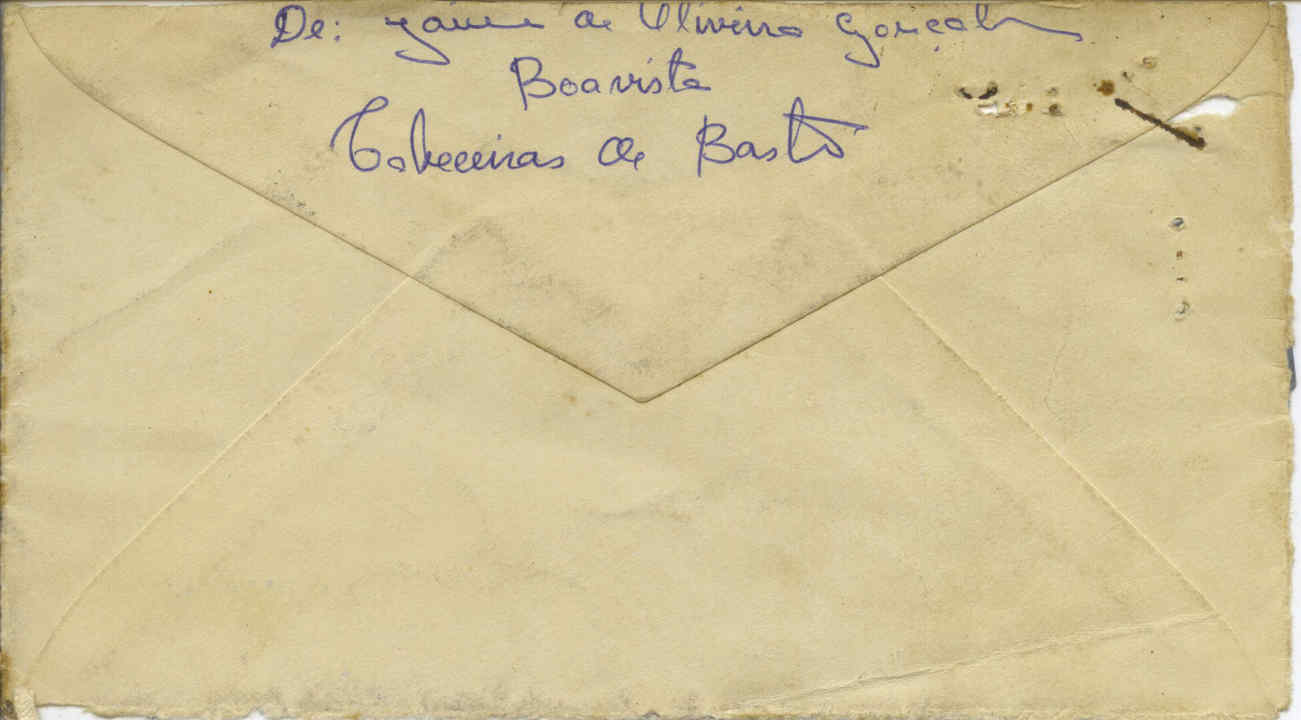 De: Jaime de Oliveira Gonçalves
Boavista
Cabeceiras de Basto